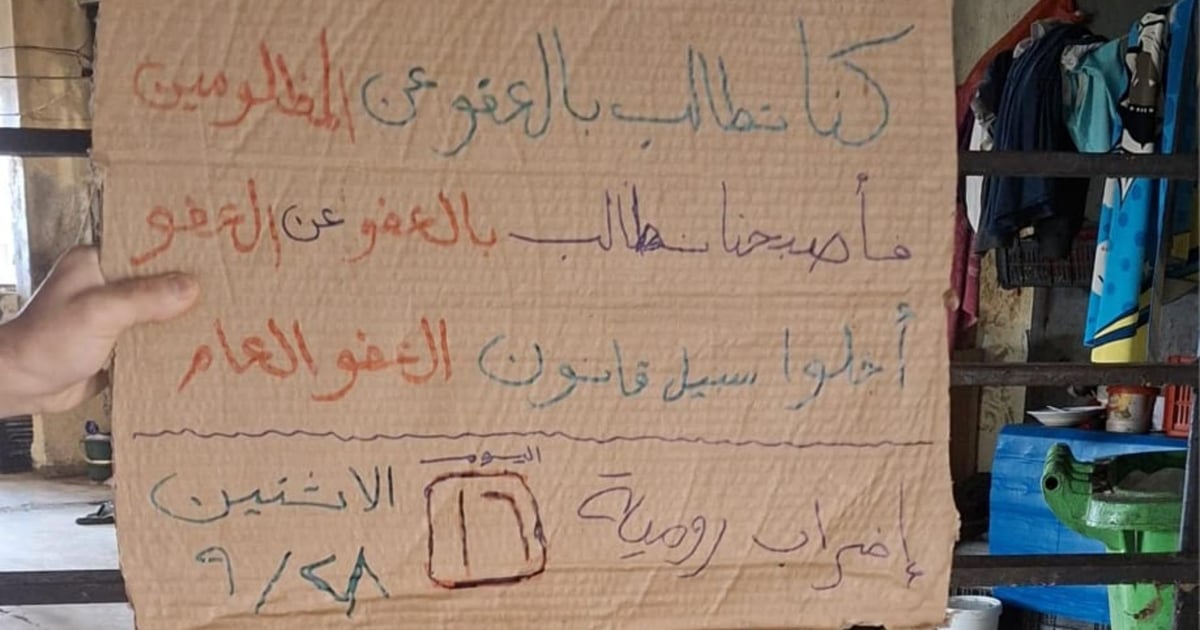 كنا نطالب بالعفو عن المظلومين
فأصبحنا نطالب بالعفو عن العفو
أخلوا سبيل قانون العفو العام
اليوم
إضراب رومية ١٦ الاثنين
٢٨/٩